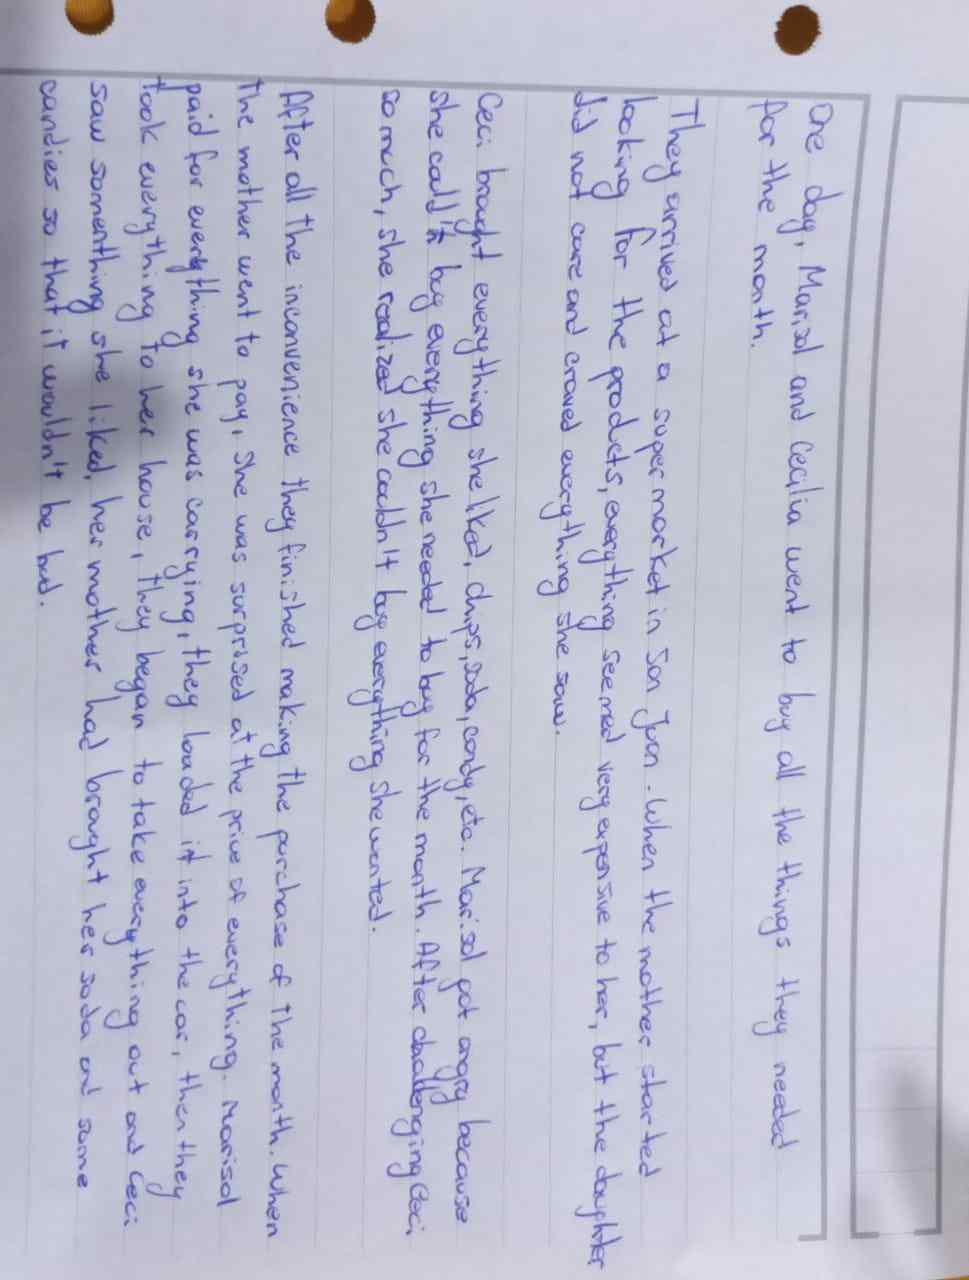 One day, Marisol and Cecilia went to buy all the things they needed
for the month.
They arrived at a supermarket in San Juan. When the mother started
looking for the products, everything seemed very expensive to her, but the daughter
did not care and craved everything she saw.
Ceci brought everything she liked, chips, soda, candy, etc. Marisol got angry because
she could'n buy everything she needed to buy for the month. After challenging Ceci
so much, she realized she couldn't buy everything she wanted.
After all the inconvenience they finished making the purchase of the month. When
the mother went to pay, she was surprised at the price of everything. Marisol
paid for everything she was carrying, they loaded it into the car, then they
took everything to her house, they began to take everything out and Ceci
saw somenthing she liked, her mother had brought her soda and some
candies so that it wouldn't be bud.